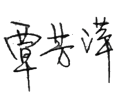 覃芳萍